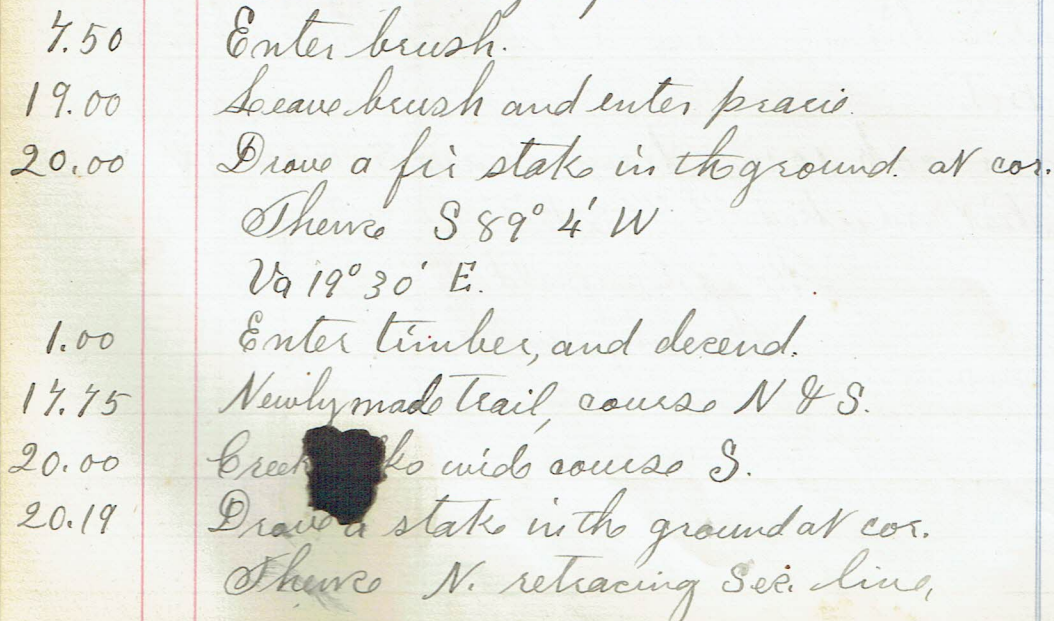 7.50 Enter brush.
19.00 Leave brush and enter pracie.
20.00 Drove a fir stake in the ground. at cor.
Thence S 89° 4' W
Va 19° 30' E.
1.00 Enter timber, and decend.
17.75 Newly made trail, course N & S.
20.00 Creek lks wide course S.
20.19 Drove a stake in the ground at cor.
Thence N. retracing Sec. line,